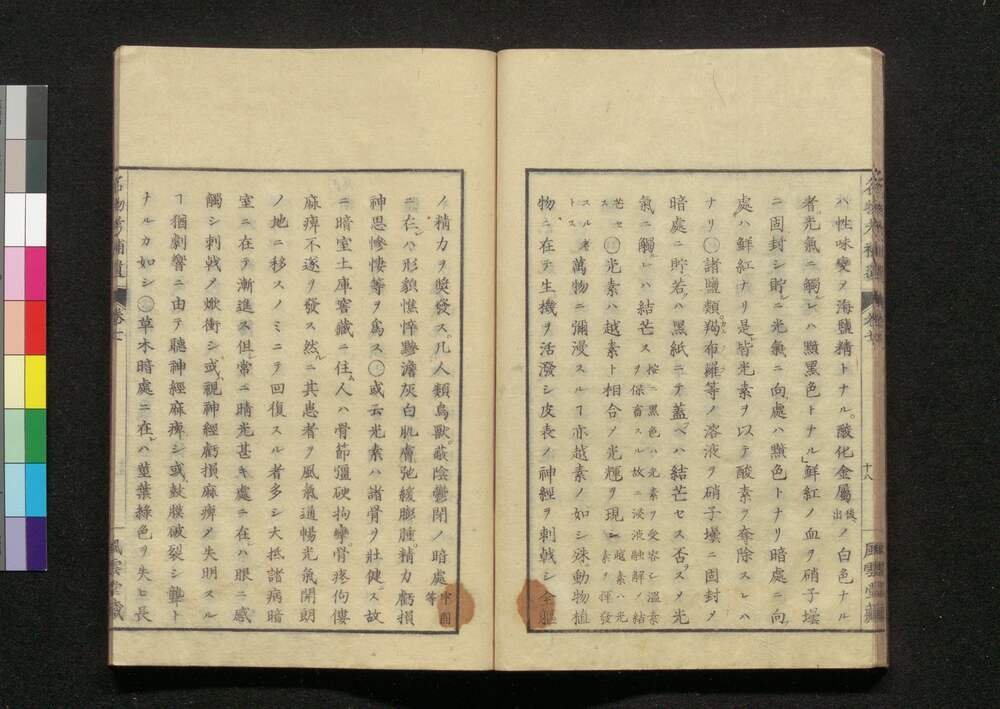 ハ性味變ヲ海鹽精トナル。酸化金屬後出ノ白色ナル
者光氣ニ觸レハ黯黑色トナル」鮮紅ノ血ヲ硝子壜
ニ固封シ貯ヘ光氣ニ向處ハ黯色トナリ暗處ニ向
處ハ鮮紅ナリ是皆光素ヲ以テ酸素ヲ奪除スレハ
ナリ諸鹽類羯布羅等ノ溶液ヲ硝子壜ニ固封メ
暗處ニ貯若ハ黑紙ニテ蓋ヘハ結芒セス否スメ光
氣ニ觸レハ結芒ス按ニ黑色ハ光素ヲ受容シ溫素
ヲ保畜スル故ニ浸液融解ノ結
芒セ光素ハ越素ト相合ノ光輝ヲ現シ越素ハ光
素ヲ揮發
スル者トス萬物ニ彌漫スルヿ亦越素ノ如シ殊動物植
物ニ在テ生機ヲ活潑シ皮表ノ神經ヲ刺戟シ全軀
十八
風雲堂藏
ノ精力ヲ奬發ス。凡人類鳥獸蔽陰鬱閉ノ暗處牢固等
ニ在ハ形貌憔悴黲澹灰白肌膚弛緩膨腫精力虧損
神思慘悽等ヲ爲ス或云光素ハ諸骨ヲ壯健ス故
ニ暗室土庫窖藏ニ住人ハ骨節彊硬拘攣骨疼佝僂
麻痺不遂ヲ發ス然ニ其患者ヲ風氣通暢光氣開朗
ノ地ニ移スノミニテ回復スル者多シ大抵諸病暗
室ニ在テ漸進ス但常ニ晴光甚キ處ニ在ハ眼ニ感
觸シ刺戟メ焮衝シ或視神經虧損麻痺メ失明スル
ヿ猶劇響ニ由テ聽神經麻痺シ或鼓膜破裂シ聾ト
ナルカ如シ草木暗處ニ在ハ莖葉綠色ヲ失ヒ長
名物考補遺 卷七
風雲堂藏